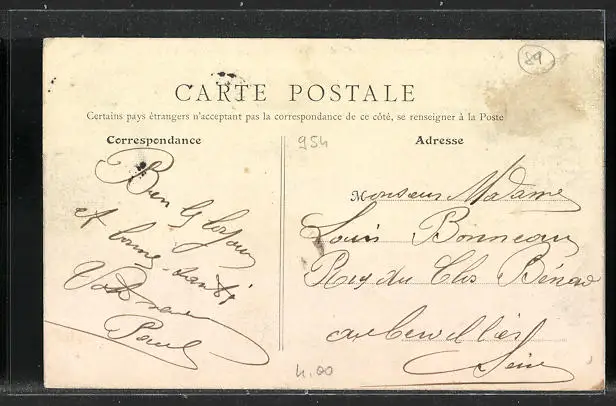 89
CARTE POSTALE
Certains pays étrangers n'acceptant pas la correspondance de ce côté, se renseigner à la Poste
Correspondance
954
Adresse
Bien le bojour
et bonne santé
Paul
Monsieur Madame
Louis Bonneau
Rue du Clos Bénard
Aubervilliers
Seine
4.00